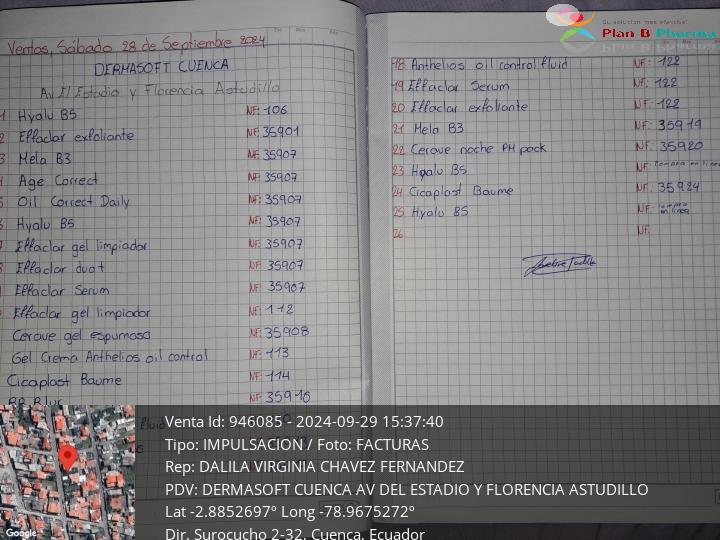 Ventas, Sábado 28 de Septiembre 2024
DERMASOFT CUENCA
Av El Estadio y Florencia Astudillo
1 Hyalu B5 NF: 106
2 Effaclar exfoliante NF: 35901
3 Mela B3 NF: 35907
Age Correct NF: 35907
Oil Correct Daily NF: 35907
Hyalu B5 NF: 35907
Effaclar gel limpiador NF: 35907
Effaclar duo+ NF: 35907
Effaclar Serum NF: 35907
Effaclar gel limpiador NF: 112
Cerave gel espumoso NF: 35908
Gel Crema Anthelios oil control NF: 113
Cicaplast Baume NF: 114
BB Blur NF: 35916
fluid
Su solucion mas efectiva!
Plan B Pharma
18 Anthelios oil control fluid NF: 122
19 Effaclar Serum NF: 122
20 Effaclar exfoliante NF: 122
21 Mela B3 NF: 35919
22 Cerave noche PM pack NF: 35920
23 Hyalu B5 NF: compra en linea
24 Cicaplast Baume NF: 35924
25 Hyalu B5 NF: compra en linea
26 NF:
Venta Id: 946085 - 2024-09-29 15:37:40
Tipo: IMPULSACION / Foto: FACTURAS
Rep: DALILA VIRGINIA CHAVEZ FERNANDEZ
PDV: DERMASOFT CUENCA AV DEL ESTADIO Y FLORENCIA ASTUDILLO
Lat -2.8852697° Long -78.9675272°
Dir. Surocucho 2-32, Cuenca, Ecuador
Google